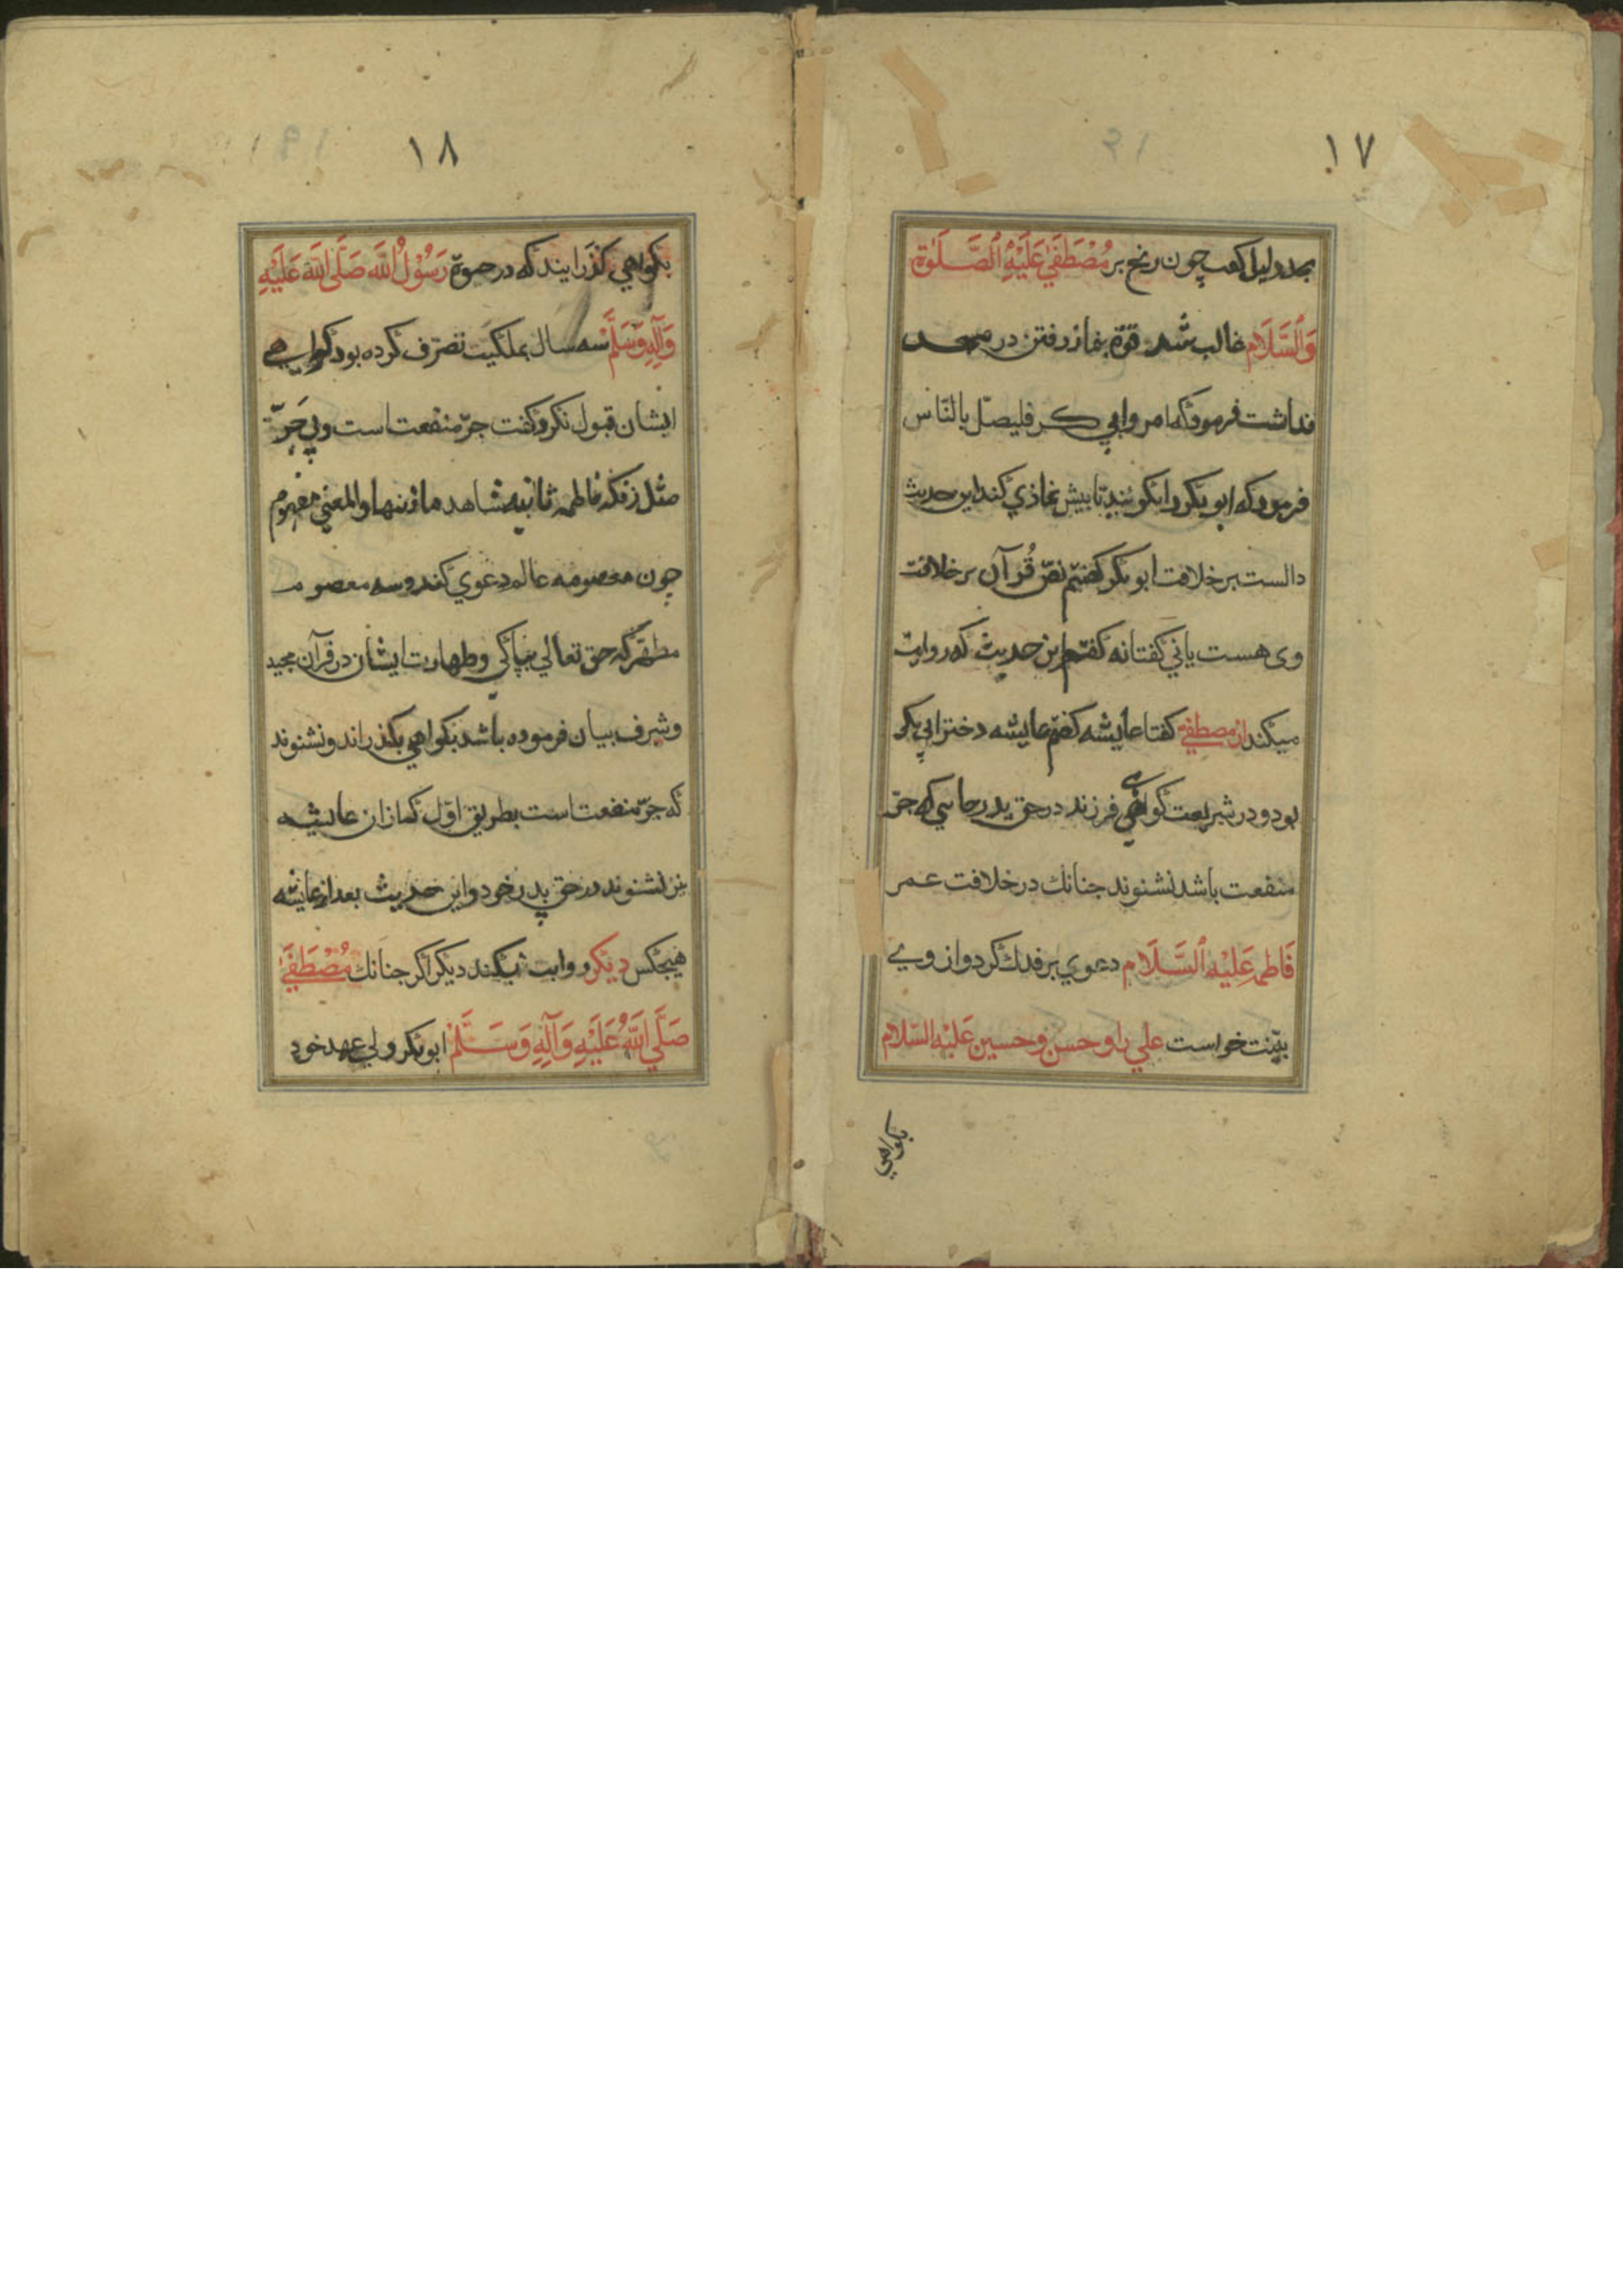 ١٧
بچه دلیل گفت چون رنج بر مُصْطَفَی عَلَیْهِ الصَّلَوٰة
وَالسَّلَام غالب شد قوّة بنماز رفتن در مسجد
نداشت فرمود که امر وا ابی بکر فلیصلّ بالنّاس
فرمود که ابو بکر را بگوئید تا پیش نمازی کند این حدیث
دالست بر خلافت ابو بکر گفتم نصّ قُرآن بر خلافت
وی هست یا نی گفتا نه گفتم این حدیث که روایت
میکند از مصطفی گفتا عایشه گفتم عایشه دختر ابی بکر
بود و در شریعت گواهی فرزند در حق پدر جایی که جرّ
منفعت باشد نشنوند جنانک در خلافت عمر
فَاطِمَه عَلَیْهِ السَّلَام دعوی بر فدک کرد و از وی
بیّنت خواست علی را و حسن و حسین عَلَیْهِ السَّلام
بکواهی
١٨
بکواهی کذرانیدند که در حیوة رَسُوْلُ اللّه صَلَّی اللّه عَلَیْهِ
وَآلِهِ وَسَلَّمْ سه سال بملکیت تصرّف کرده بود کواهی
ایشان قبول نکرد و کفت جرّ منفعت است و بی جَرّ
مثل زنکه فاطمه ثانیه شاهد ماذنبها والمعنی مفهوم
چون معصومه عالم دعوی کند و سه معصوم
مطهّر که حق تعالی بپاکی و طهارت ایشان در قرآن مجید
و شرف بیان فرموده باشد بکواهی بکذراند و نشنوند
که جرّ منفعت است بطریق اوّل که از ان عایشه
نیز نشنوند در حق پدر خود و این حدیث بعد از عایشه
هیچکس دیکر روایت نمیکند دیکر اکر جنانک مُصْطَفَی
صَلَّی اللّهُ عَلَیْهِ وَآلِهِ وَسَلَّمْ ابو بکر ولی عهد خود